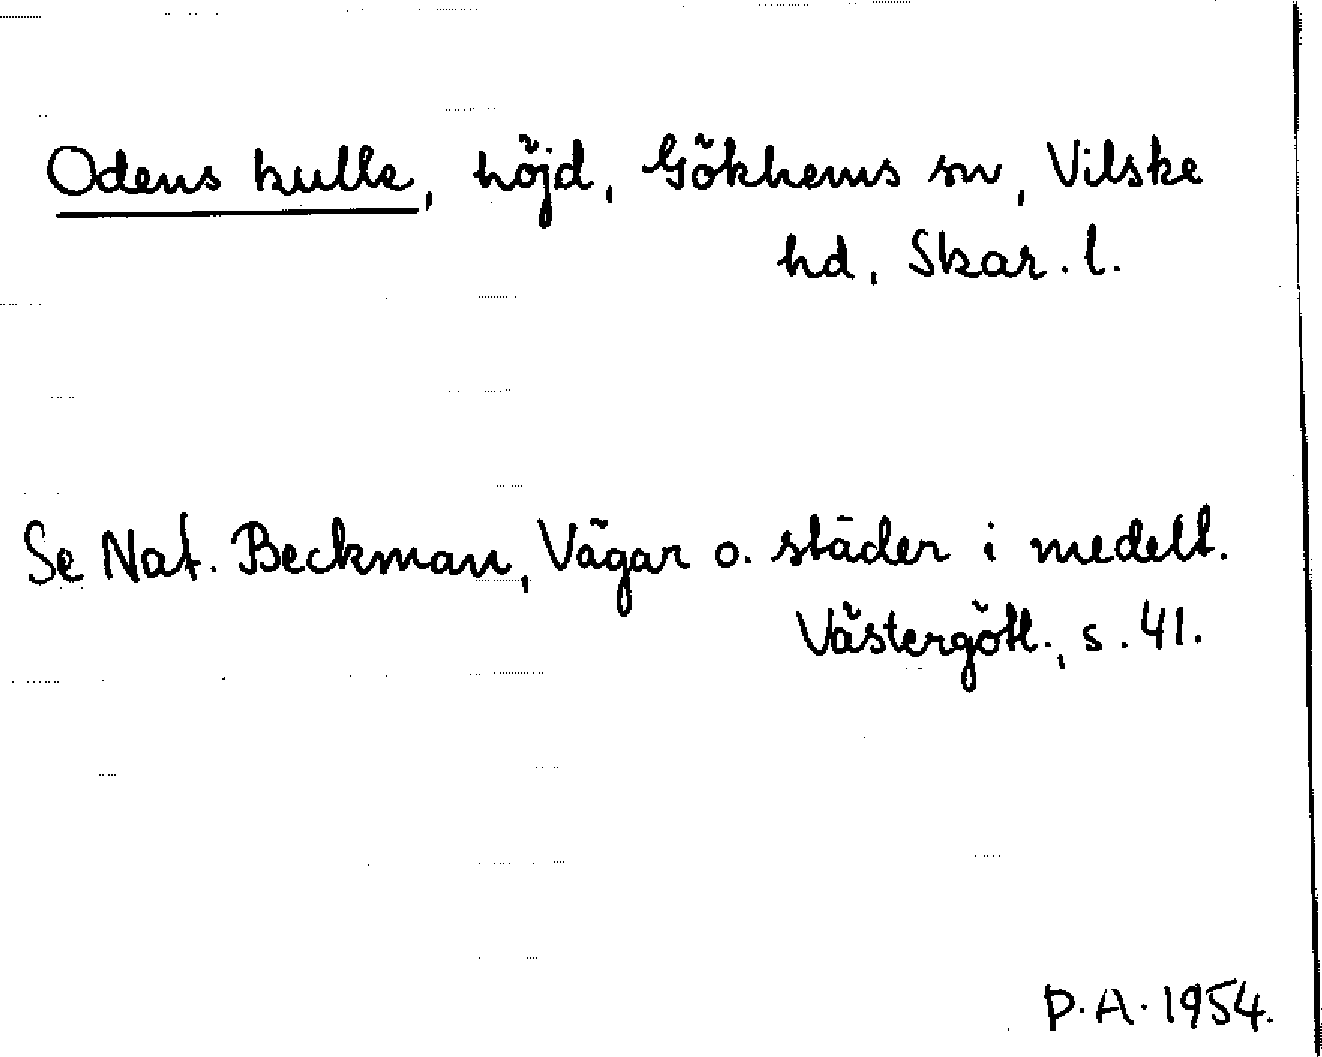 Odens kulle, höjd, Gökhems sn, Vilske
hd, Skar. l.
Se Nat. Beckman, Vägar o. städer i medelt.
Västergötl., s. 41.
P.A. 1954.